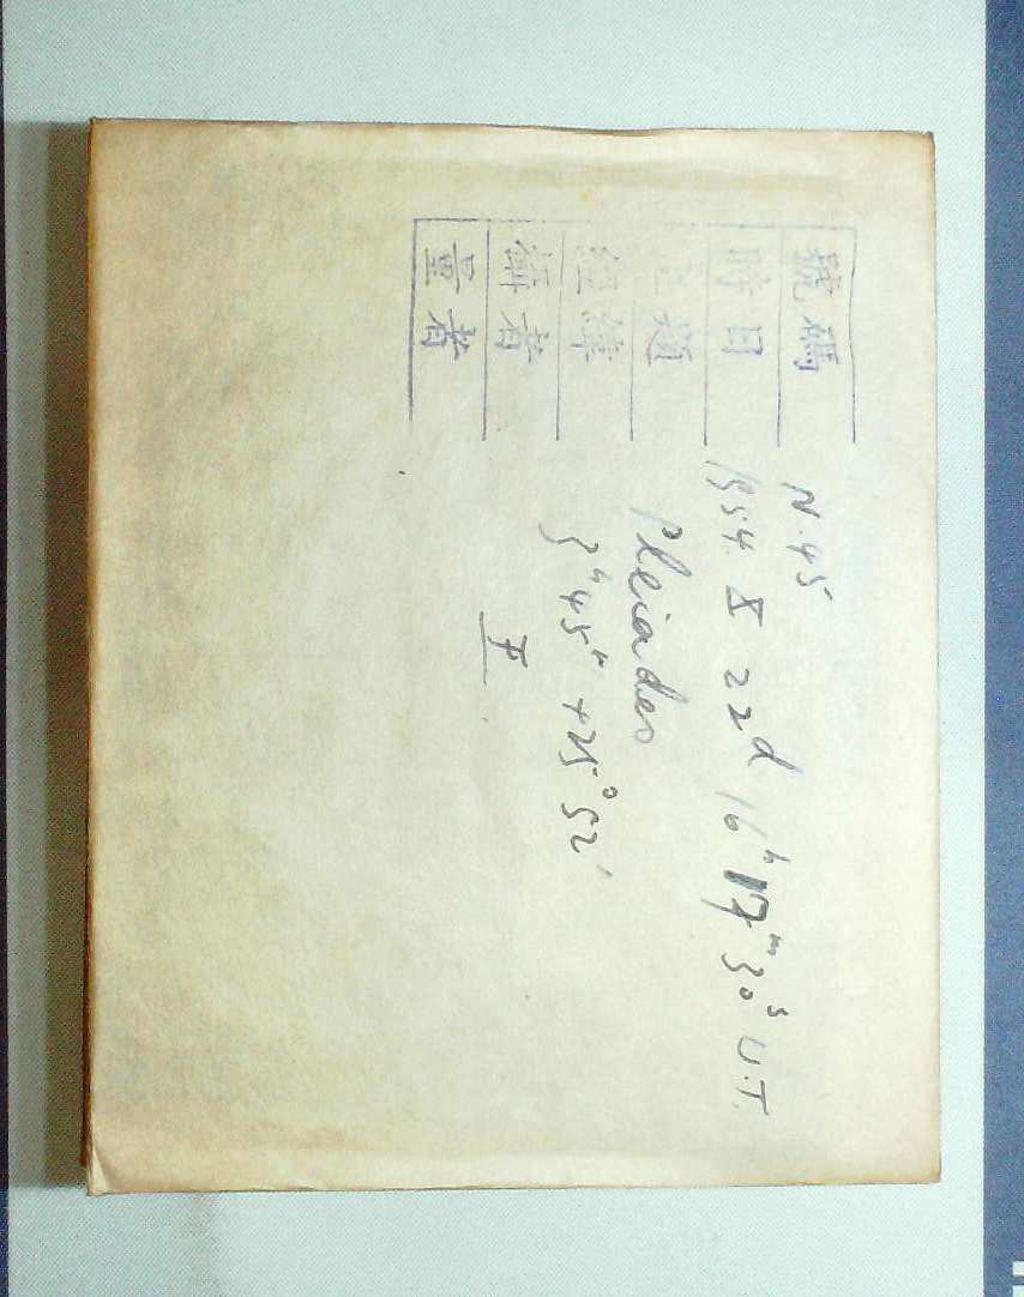 號碼 N.45
時日 1954 X 22d 16h 17m 30s U.T.
題 Pleiades
經緯 3h45m +25°52'
攝者 F
量者